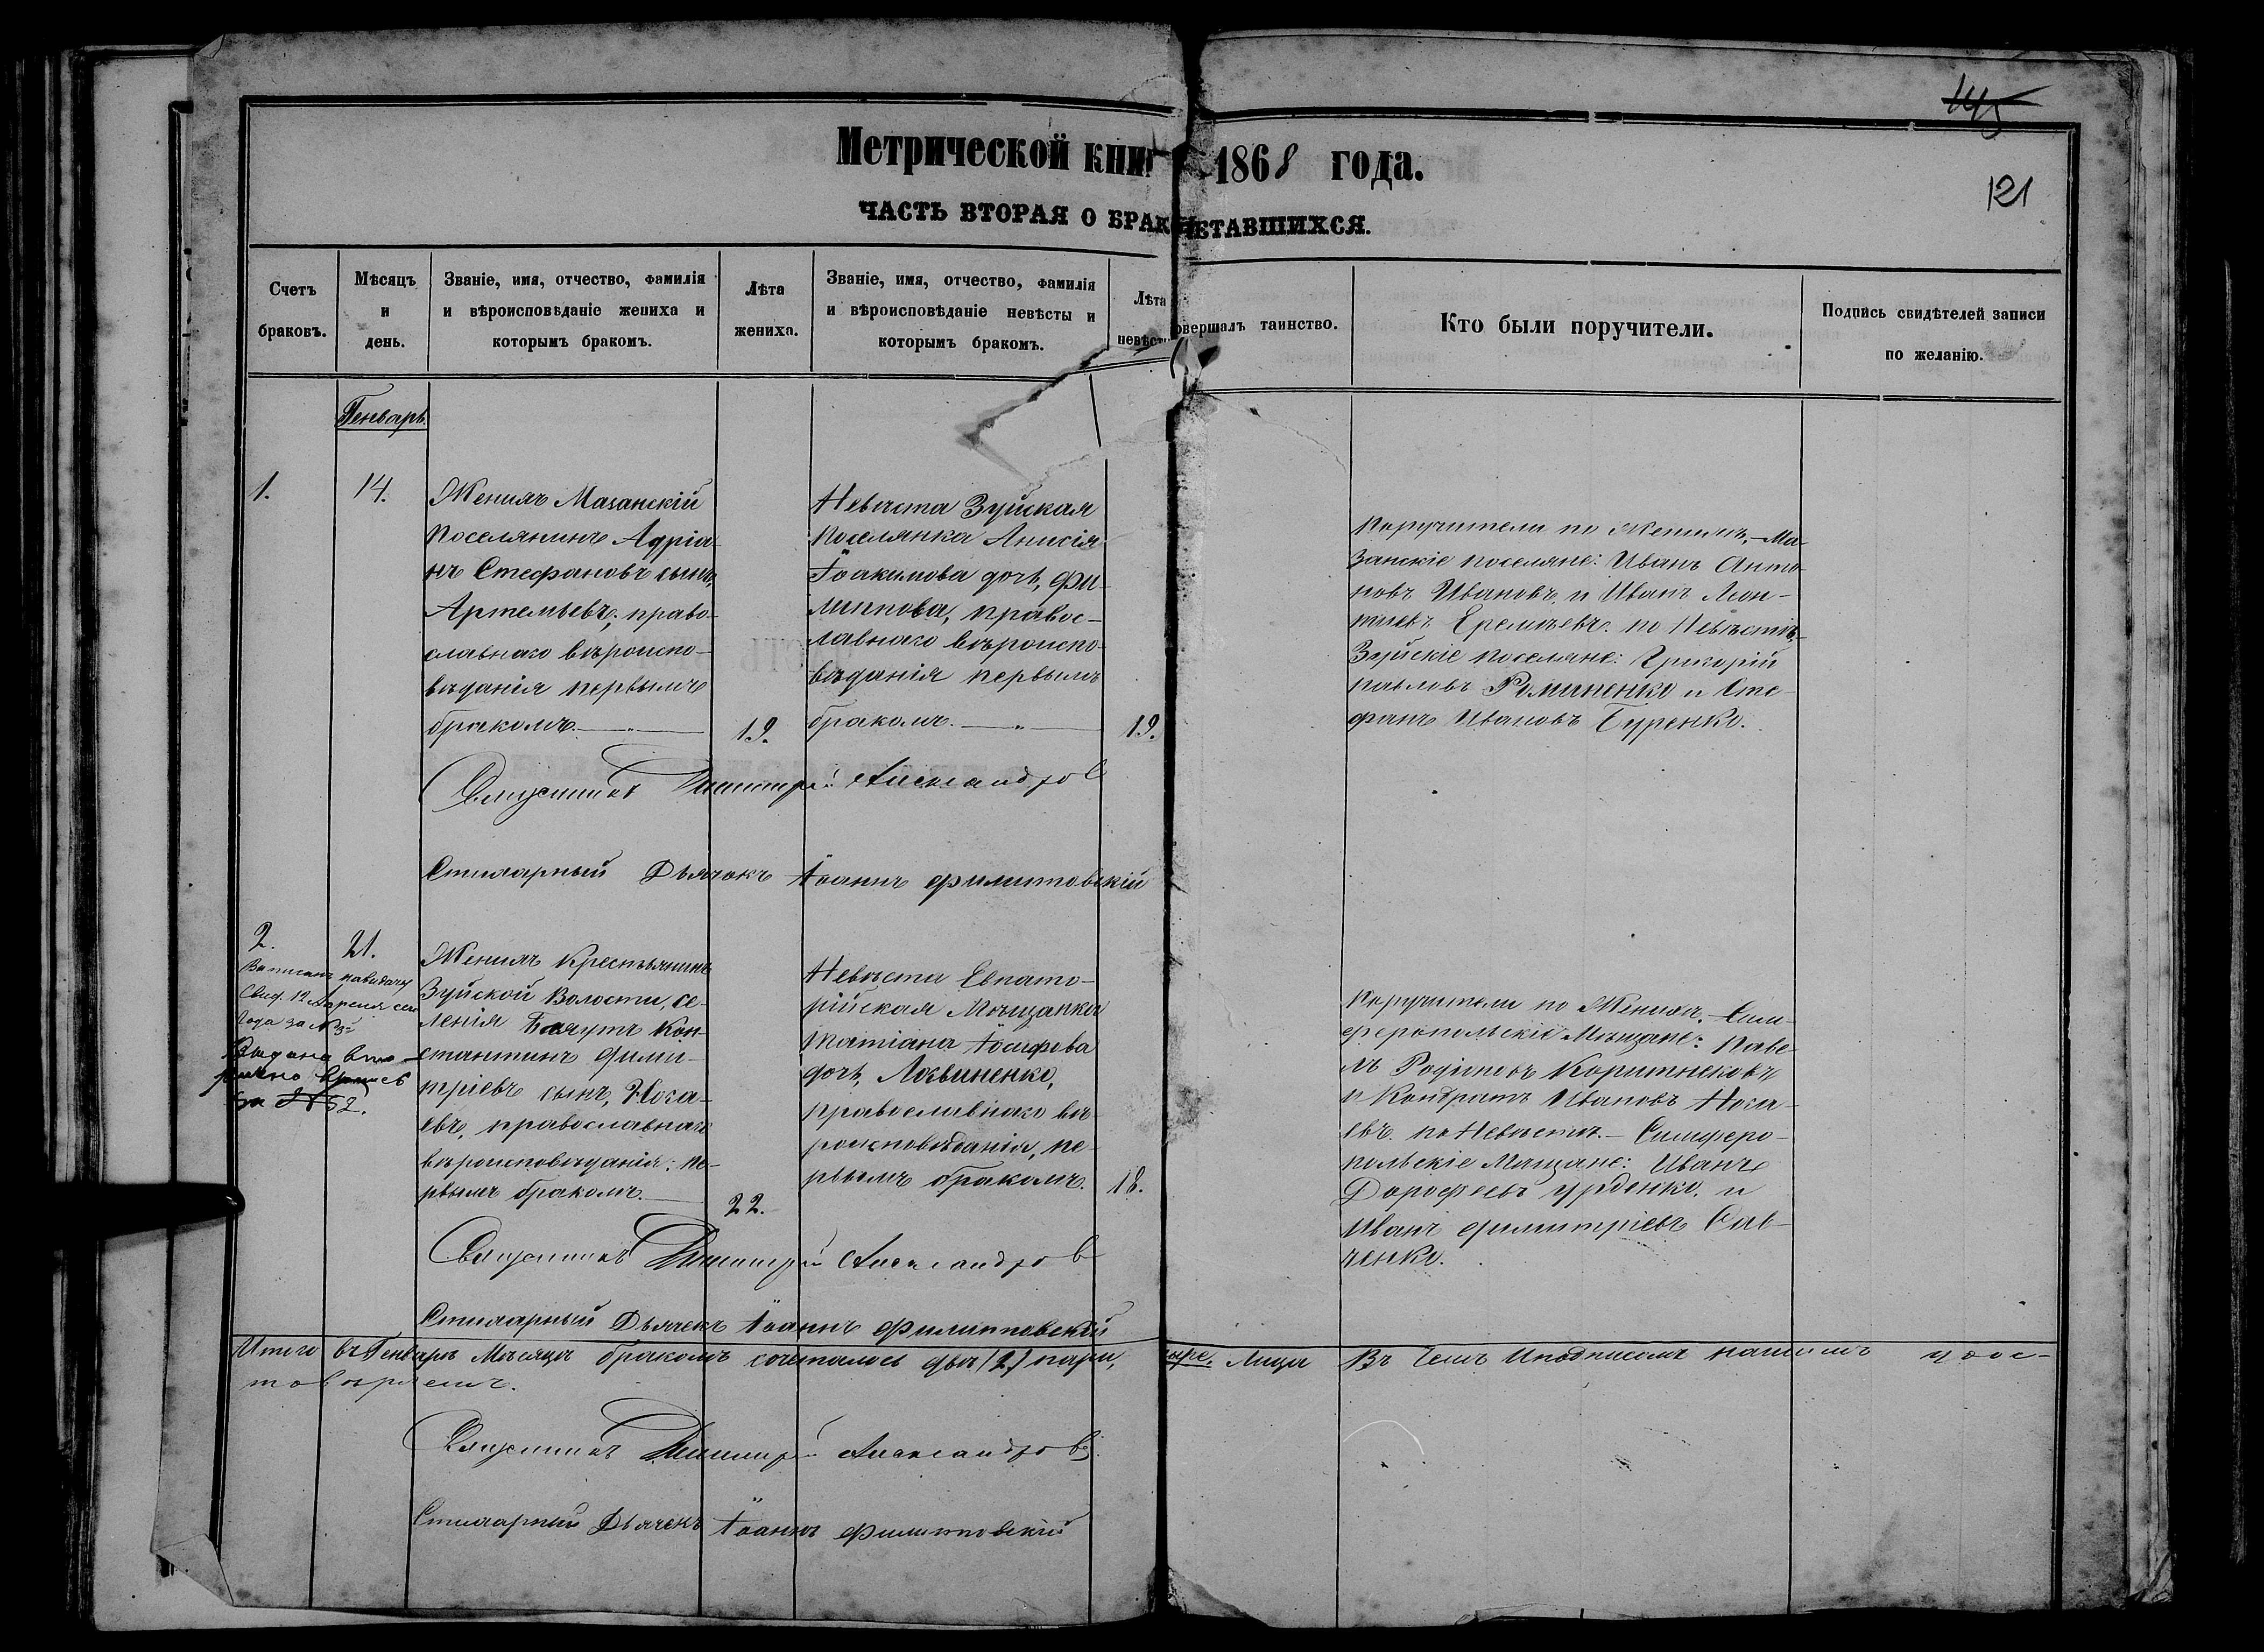 145
121
Метрической книг 1868 года.
ЧАСТЬ ВТОРАЯ О БРАК ЧЕТАВШИХСЯ.
Счетъ браковъ.
Мѣсяцъ и день.
Званіе, имя, отчество, фамилія и вѣроисповѣданіе жениха и которымъ бракомъ.
Лѣта жениха.
Званіе, имя, отчество, фамилія и вѣроисповѣданіе невѣсты и которымъ бракомъ.
Лѣта невѣсты
овершалъ таинство.
Кто были поручители.
Подпись свидѣтелей записи по желанію.
Генварь
1.
14.
Женихъ Мазанскій
поселянинъ Адріа-
нъ Стефановъ сынъ,
Артемьевъ, право-
славнаго вѣроиспо-
вѣданія первымъ
бракомъ.
19.
Невѣста Зуйская
поселянка Анисія
Іоакимова дочь, Фи-
липпова, правос-
лавнаго вѣроиспо-
вѣданія первымъ
бракомъ.
19.
Поручители по Женихѣ, Ма-
занскіе поселяне: Иванъ Анто-
новъ Ивановъ, и Иванъ Леон-
тіевъ Еремѣевъ. по Невѣстѣ,
Зуйскіе поселяне: Григорій
Павловъ Романенко и Сте-
фанъ Ивановъ Буренко.
Священникъ Димитрій Александров
Стихарный Дьячокъ Іоаннъ Филипповскій
2.
21.
Свид. 12 Апреля сего
года за № 3
Выдана вто-
рично
за № 52.
Женихъ Крестьянинъ
Зуйской Волости, се-
ленія Бахутъ Кон-
стантинъ Дими-
тріевъ сынъ, Нога-
евъ, православнаго
вѣроисповѣданія, пе-
рвымъ бракомъ.
22.
Невѣста Евпато-
рійская Мѣщанка
Татіана Іосифова
дочь, Логвиненко,
православнаго вѣ-
роисповѣданія, пе-
рвымъ бракомъ.
18.
Поручители по Женихѣ, Сим-
феропольскіе Мѣщане: Паве-
лъ Родіоновъ
и Кондратъ Ивановъ Нога-
евъ. по Невѣстѣ. Симферо-
польскіе Мѣщане: Иванъ
Дорофеевъ и
Иванъ Димитріевъ Сав-
ченко.
Священникъ Димитрій Александров
Стихарный Дьячекъ Іоаннъ Филипповскій
Итого въ Генварѣ Мѣсяцѣ бракомъ сочеталось двѣ (2) пары, Лица Въ чемъ и подписомъ нашимъ удос-
товѣряемъ.
Священникъ Димитрій Александровъ
Стихарный Дьячекъ Іоаннъ Филипповскій